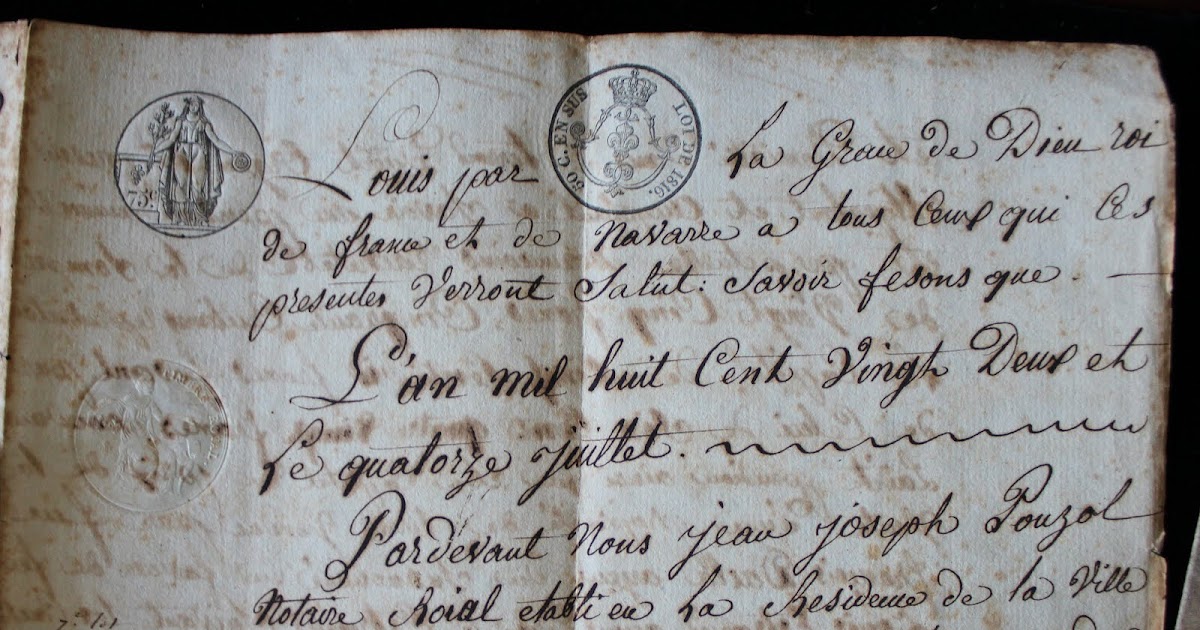 75c.
50 C. EN SUS
LOI DE 1816.
Louis par La Grace de Dieu roi
de france et de Navarre a tous Ceux qui Ces
presentes Verront Salut: Savoir fesons que
L'an mil huit Cent Vingt Deux et
Le quatorze juillet.
Pardevant Nous jean joseph Pouzol
Notaire Roial etabli en La Residence de la Ville